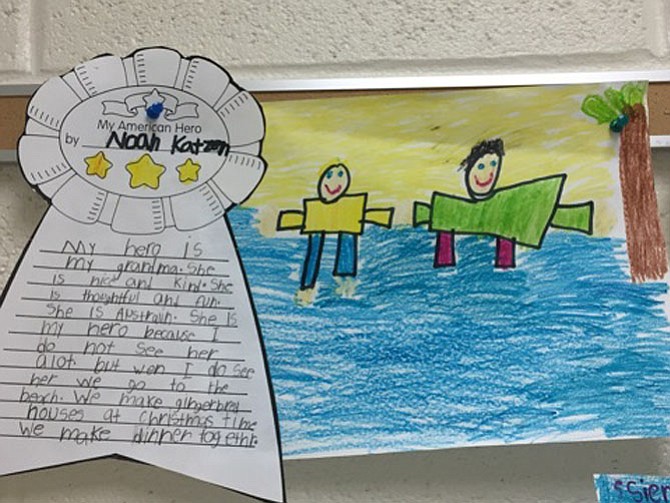 My American Hero
by Noah Katzen
My hero is
my grandma. She
is nice and kind. She
is thoughtful and fun.
She is Australin. She is
my hero because I
do not see her
alot but wen I do see
her we go to the
beach. We make gingerbred
houses at christmas time
We make dinner togethr